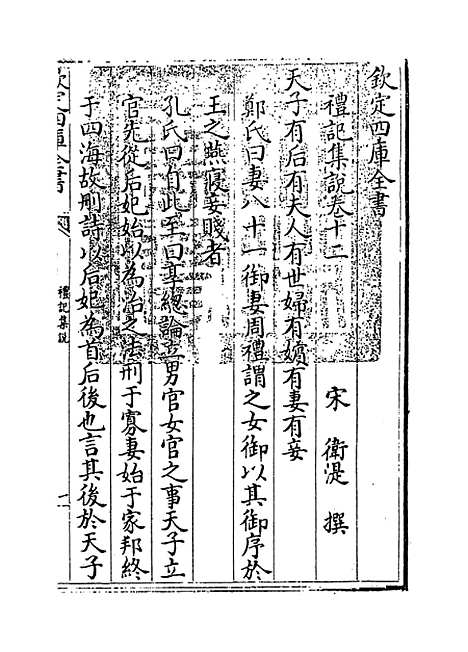 欽定四庫全書
禮記集說卷十二
宋 衛湜 撰
天子有后有夫人有世婦有嬪有妻有妾
鄭氏曰妻八十一御妻周禮謂之女御以其御序於
王之燕寢妾賤者
孔氏曰自此至曰某總論立男官女官之事天子立
官先從后妃始以為治之法刑于寡妻始于家邦終
于四海故刑詩以后妃為首后後也言其後於天子
欽定四庫全書
禮記集說